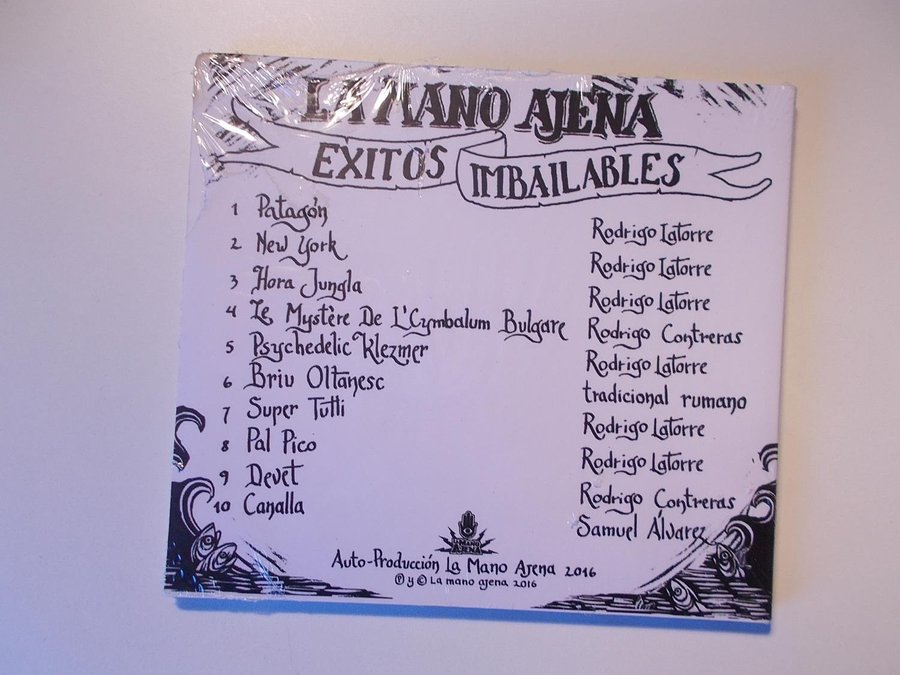 LA MANO AJENA
EXITOS IMBAILABLES
1 Patagón Rodrigo Latorre
2 New York Rodrigo Latorre
3 Hora Jungla Rodrigo Latorre
4 Le Mystère De L'Cymbalum Bulgare Rodrigo Contreras
5 Psychedelic Klezmer Rodrigo Latorre
6 Briu Oltanesc tradicional rumano
7 Super Tutti Rodrigo Latorre
8 Pal Pico Rodrigo Latorre
9 Devét Rodrigo Contreras
10 Canalla Samuel Álvarez
LA MANO
AJENA
Auto-Producción La Mano Ajena 2016
℗ y © La mano ajena 2016